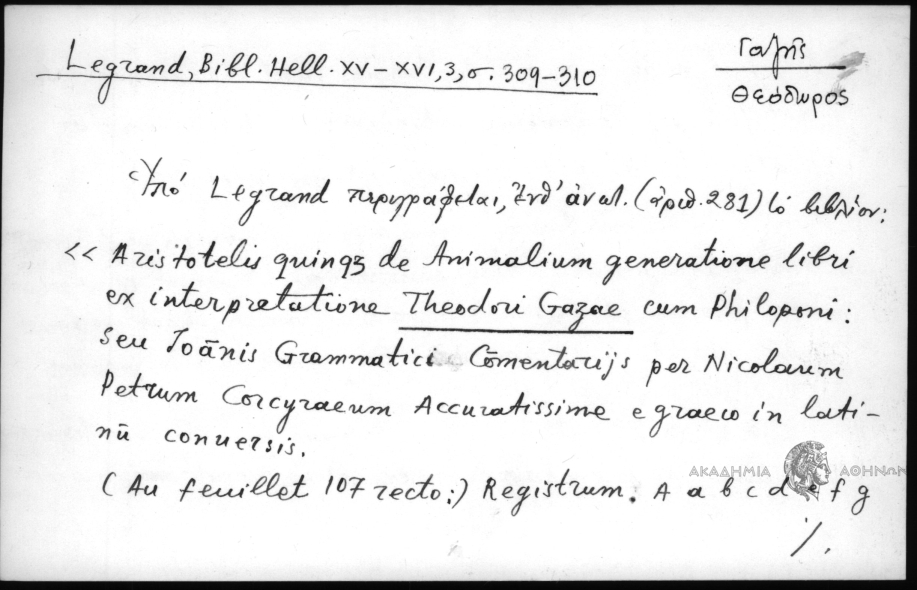 Legrand, Bibl. Hell. XV–XVI, 3, σ. 309–310
Γαζῆς
Θεόδωρος
Ὑπό Legrand περιγράφεται, ὑπ' ἀριθ. (ἀριθ. 281) τό βιβλίον:
<< Aristotelis quinqꝫ de Animalium generatione libri
ex interpretatione Theodori Gazae cum Philoponi:
seu Joānis Grammatici Cōmentarijs per Nicolaum
Petrum Corcyraeum Accuratissime e graeco in lati-
nū conversis.
(Au feuillet 107 recto:) Registrum. A a b c d e f g
ΑΚΑΔΗΜΙΑ ΑΘΗΝΩΝ
./.